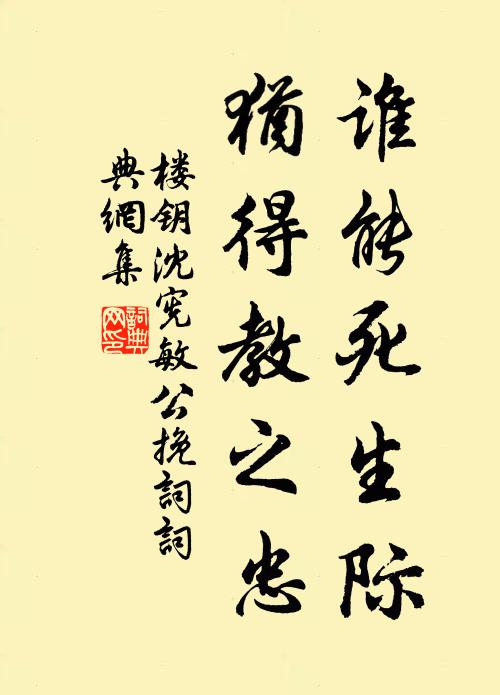 谁能死生际
猶得教之忠
楼钥沈宪敏公挽詞詞
典網集
詞典
网印